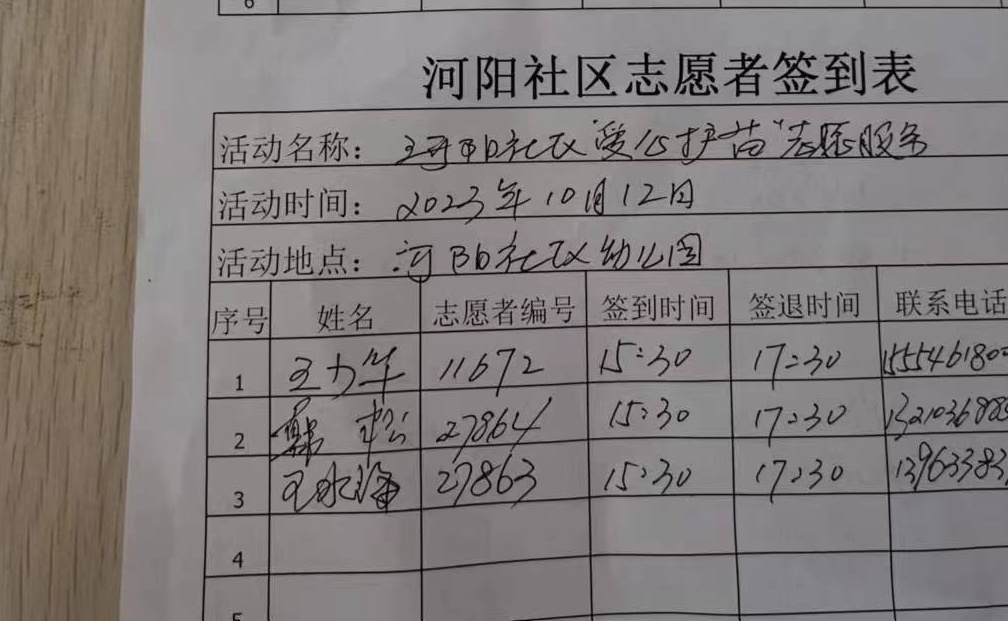 6
河阳社区志愿者签到表
活动名称: 河阳社区"爱心护苗"志愿服务
活动时间: 2023年10月12日
活动地点: 河阳社区幼儿园
序号 姓名 志愿者编号 签到时间 签退时间 联系电话
1 王力华 11672 15:30 17:30 155546180
2 松 27864 15:30 17:30 1321036888
3 王永海 27863 15:30 17:30 13963383
4
5